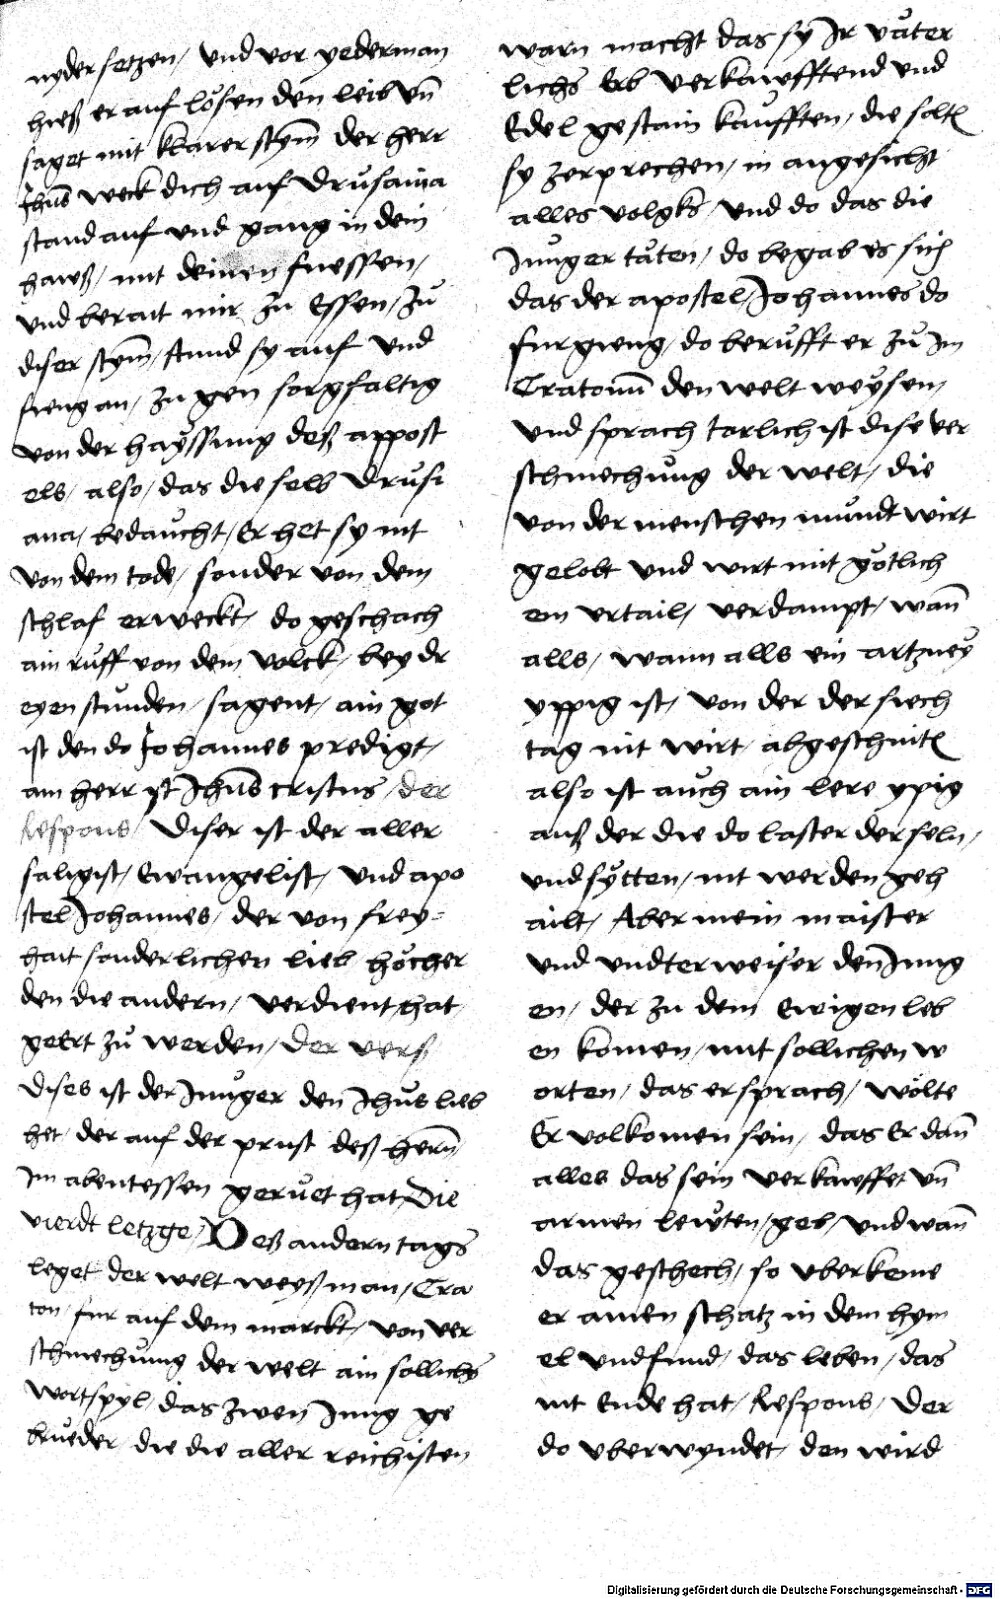 nyder setzen / vnd vor yederman
hieß er auf lősen den leib vn̄
saget mit klarer stym̄ der herr
Jhūs weck dich auf Drusaina
stand auf vnd gang in dein
hawß / mit deinen fuessen /
vnd berait mir zu Essen / zů
diser stym̄ / stund sy auf vnd
fieng an / zu gen sorgfaltig
von der hayssung deß appost
els / also / das die selb Drusi
ana / bedaucht / Er het sy nit
von dem tode / sonder von dem
schlaf erweckt / do geschach
ain růff von dem volck / bey dr
eyen stunden / sagent / ain got
ist den do Johannes predigt /
ain herr yst Jhūs cristus / der
Respons / Diser ist der aller
saligist / Ewangelist / vnd apo
stel Johannes / der von frey=
hait sonderlichen lieb hőcher
den die andern / verdient hat
geert zů werden / Der vers /
Dises ist der Junger den Jhūs lieb
het / der auf der prust deß herrn̄
Im abentessen geruet hat / Die
vierdt letzge / Deß andern tags
leget der welt weyß man / Cra
ton / fur auf dem marckt / von ver
schmechung der welt ain sollichs
wortspyl / das zwen Jung ge
brueder / die die aller reichisten
warn macht das sy Ir våter
lichs Erb verkawfftend vnd
Edel gestain kaufften / die solt
sy zerprechen / in angesicht
alles volgks / vnd do das die
Junger tåten / do begab es sich
das der apostel / Johannes do
fur gieng / do berůfft er zů Im
Cratonū den welt weysen /
vnd sprach torlich ist dise ver
schmechung der welt / die
von der menschen mundt wirt
gelobt vnd wirt mit gőtlich
em vrtail / verdampt / wan̄
alls / wann alls ein artzney
yppig ist / von der der siech
tag nit wirt / abgeschnitt
also ist auch ain lere ypig
auß der die do laster der seln /
vnd sytten / nit werden geh
ailt / Aber mein maister
vnd vndterweiser den Jung
en / der zu dem Ewigen leb
en komen / mit sollichen w
orten / das er sprach / wőlte
Er volkomen sein / das Er dan̄
alles das sein verkawffet vn̄
armen lewten / geb / vnd wan̄
das geschech / so vberkeme
er ainen schatz in dem hym
el vnd fund / das leben / das
nit Ende hat / Respons / Der
do vberwyndet / den wird
Digitalisierung gefördert durch die Deutsche Forschungsgemeinschaft - DFG